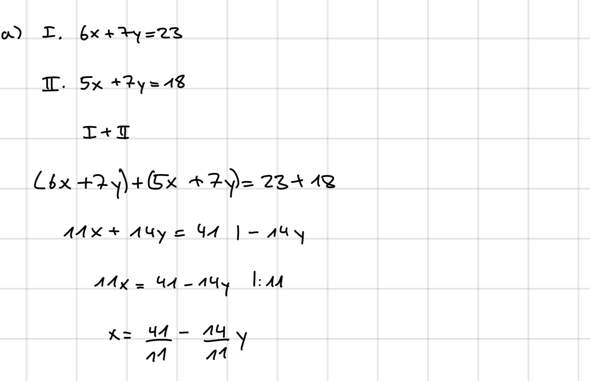 a) I. 6x+7y=23
II. 5x+7y=18
I+II
(6x+7y)+(5x+7y)=23+18
11x+14y=41 |-14y
11x=41-14y |:11
x=41/11-14/11y